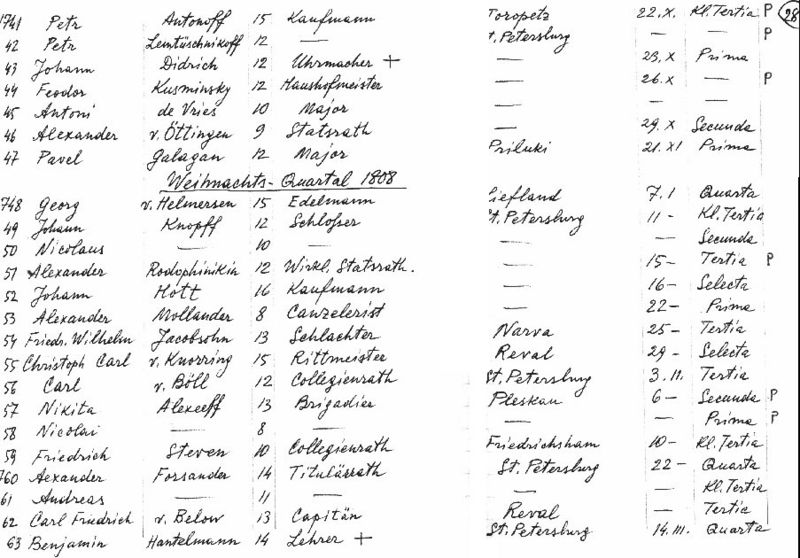 1741 Petr Antonoff 15 Kaufmann Toropetz 22.X. Kl. Tertia P 28
42 Petr Lemtüschnikoff 12 — St. Petersburg — — P
43 Johann Didrich 12 Uhrmacher + — 23.X Prima
44 Feodor Kusminsky 12 Haushofmeister — 26.X — P
45 Antoni de Vries 10 Major — — —
46 Alexander v. Öttingen 9 Statsrath — 29.X Secunda
47 Pavel Galagan 12 Major Priluki 21.XI Prima
Weihnachts-Quartal 1808
748 Georg v. Helmersen 15 Edelmann Liefland 7.1 Quarta
49 Johann Knopff 12 Schlosser St. Petersburg 11 - Kl. Tertia
50 Nicolaus — 10 — — — Secunda
51 Alexander Rodophinikin 12 Wirkl. Statsrath. — 15 - Tertia P
52 Johann Hott 16 Kaufmann — 16 - Selecta
53 Alexander Mollander 8 Canzelerist — 22 - Prima
54 Friedr. Wilhelm Jacobsohn 13 Schlachter Narva 25 - Tertia
55 Christoph Carl v. Knorring 15 Rittmeister Reval 29 - Selecta
56 Carl v. Böll 12 Collegienrath St. Petersburg 3.II. Tertia
57 Nikita Alexeeff 13 Brigadier Pleskau 6 - Secunda P
58 Nicolai — 8 — — — Prima P
59 Friedrich Steven 10 Collegienrath Friedrichsham 10 - Kl. Tertia
760 Alexander Forsander 14 Titulärrath St. Petersburg 22 - Quarta
61 Andreas — 11 — — — Kl. Tertia
62 Carl Friedrich v. Below 13 Capitän Reval — Tertia
63 Benjamin Hantelmann 14 Lehrer + St. Petersburg 14.III. Quarta